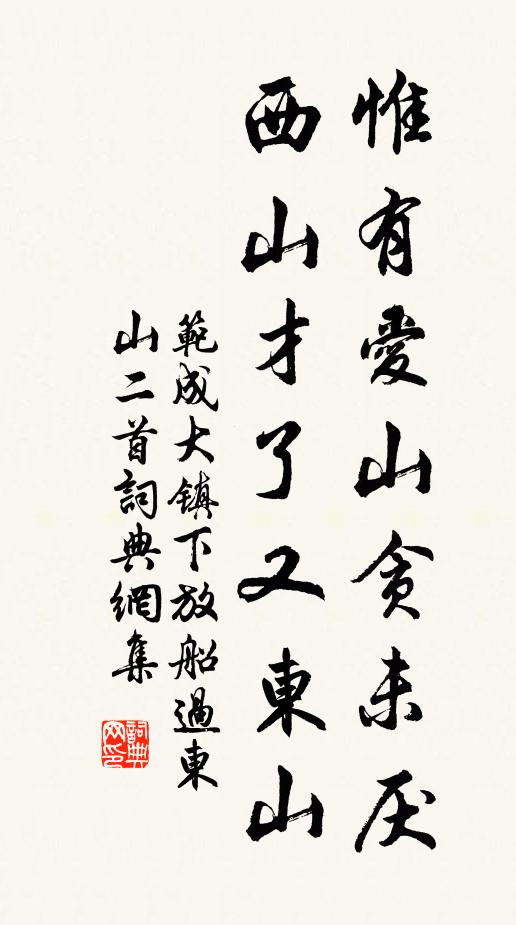 惟有愛山貪未厌
西山才了又東山
範成大镇下放船過東
山二首詞典網集
詞典網印